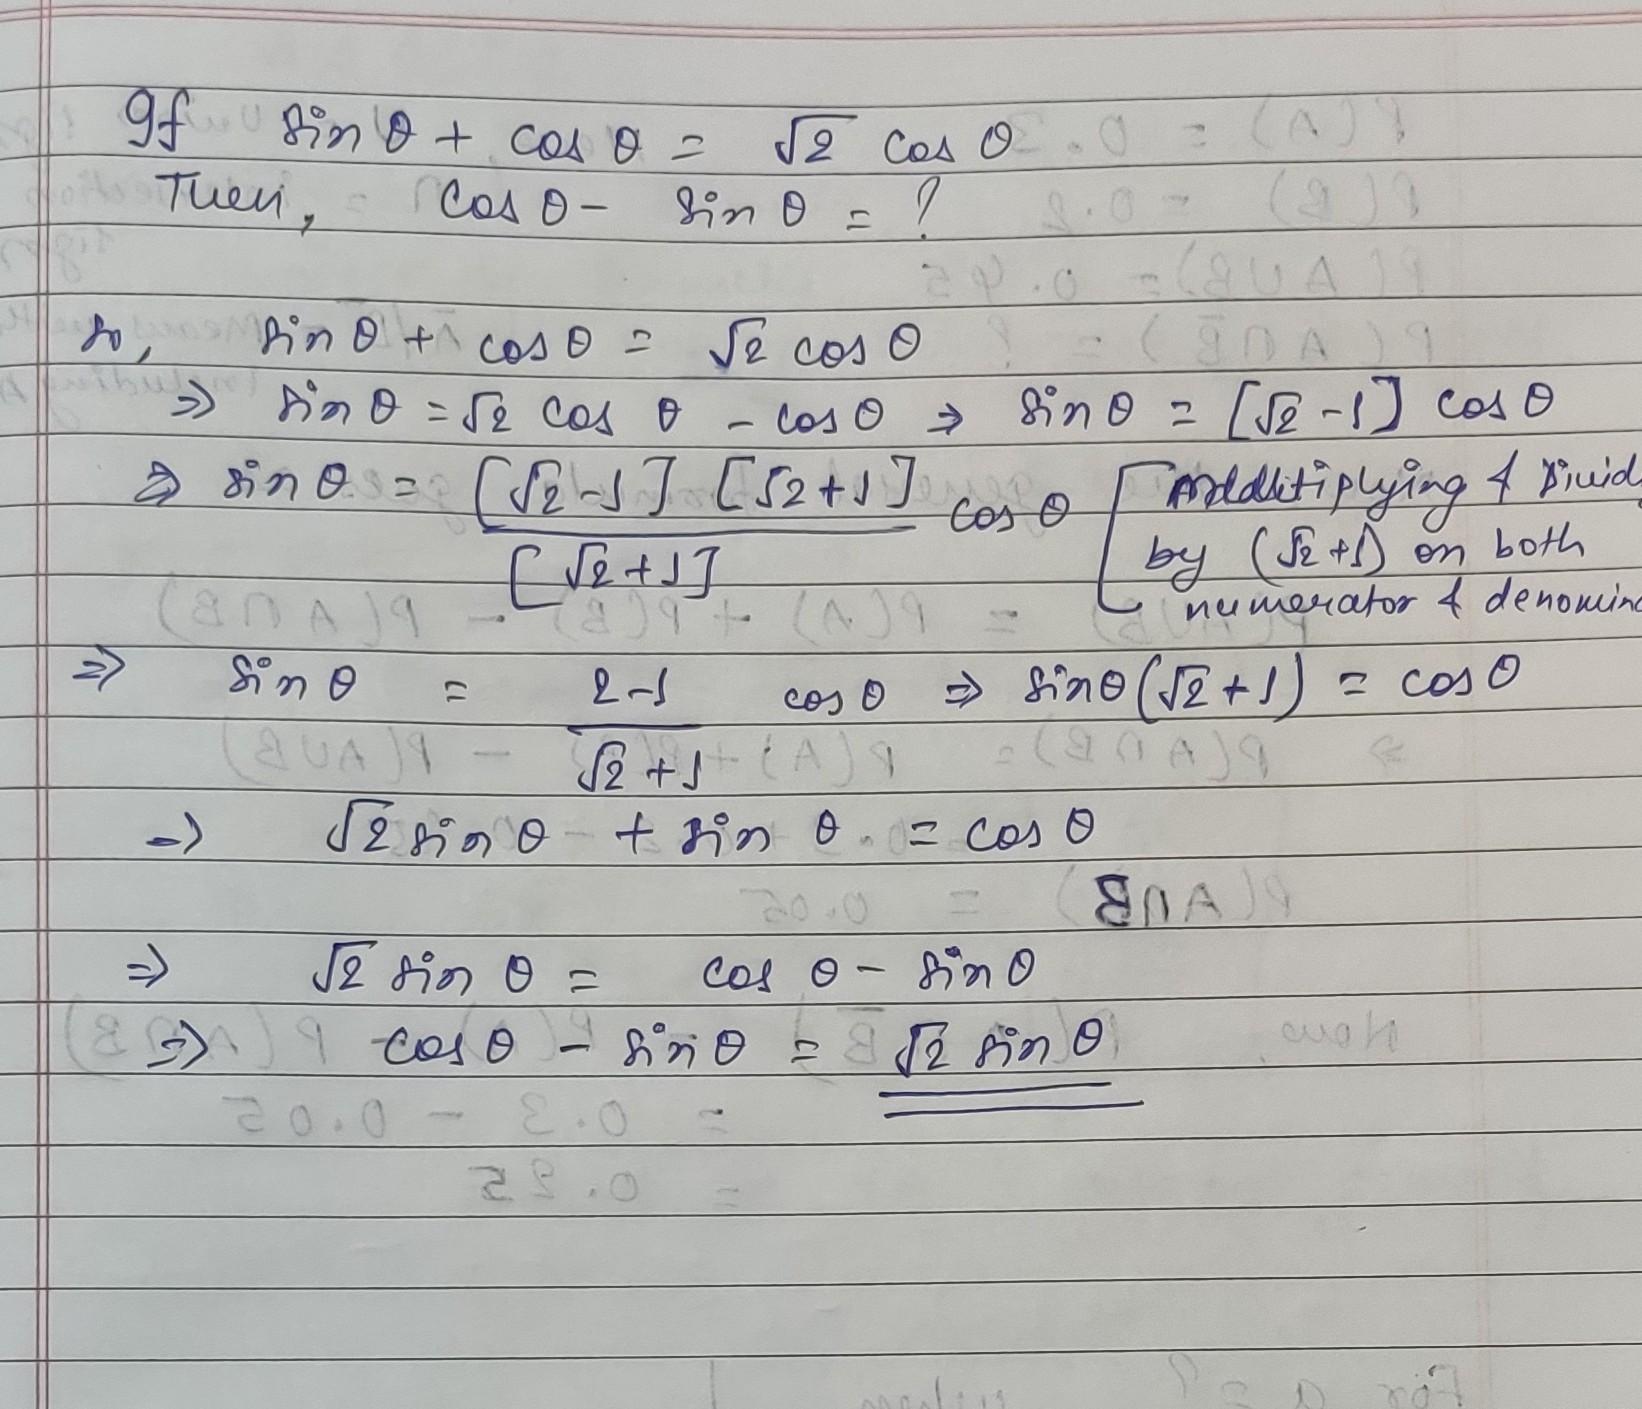 If sin θ + cos θ = √2 cos θ
Then, cos θ - sin θ = ?
so, sin θ + cos θ = √2 cos θ
⇒ sin θ = √2 cos θ - cos θ ⇒ sin θ = [√2 - 1] cos θ
⇒ sin θ = [√2 - 1] [√2 + 1] / [√2 + 1] cos θ [ Multiplying & Divid
by (√2 + 1) on both
numerator & denomin
⇒ sin θ = 2 - 1 / √2 + 1 cos θ ⇒ sin θ (√2 + 1) = cos θ
⇒ √2 sin θ + sin θ = cos θ
⇒ √2 sin θ = cos θ - sin θ
⇒ cos θ - sin θ = √2 sin θ